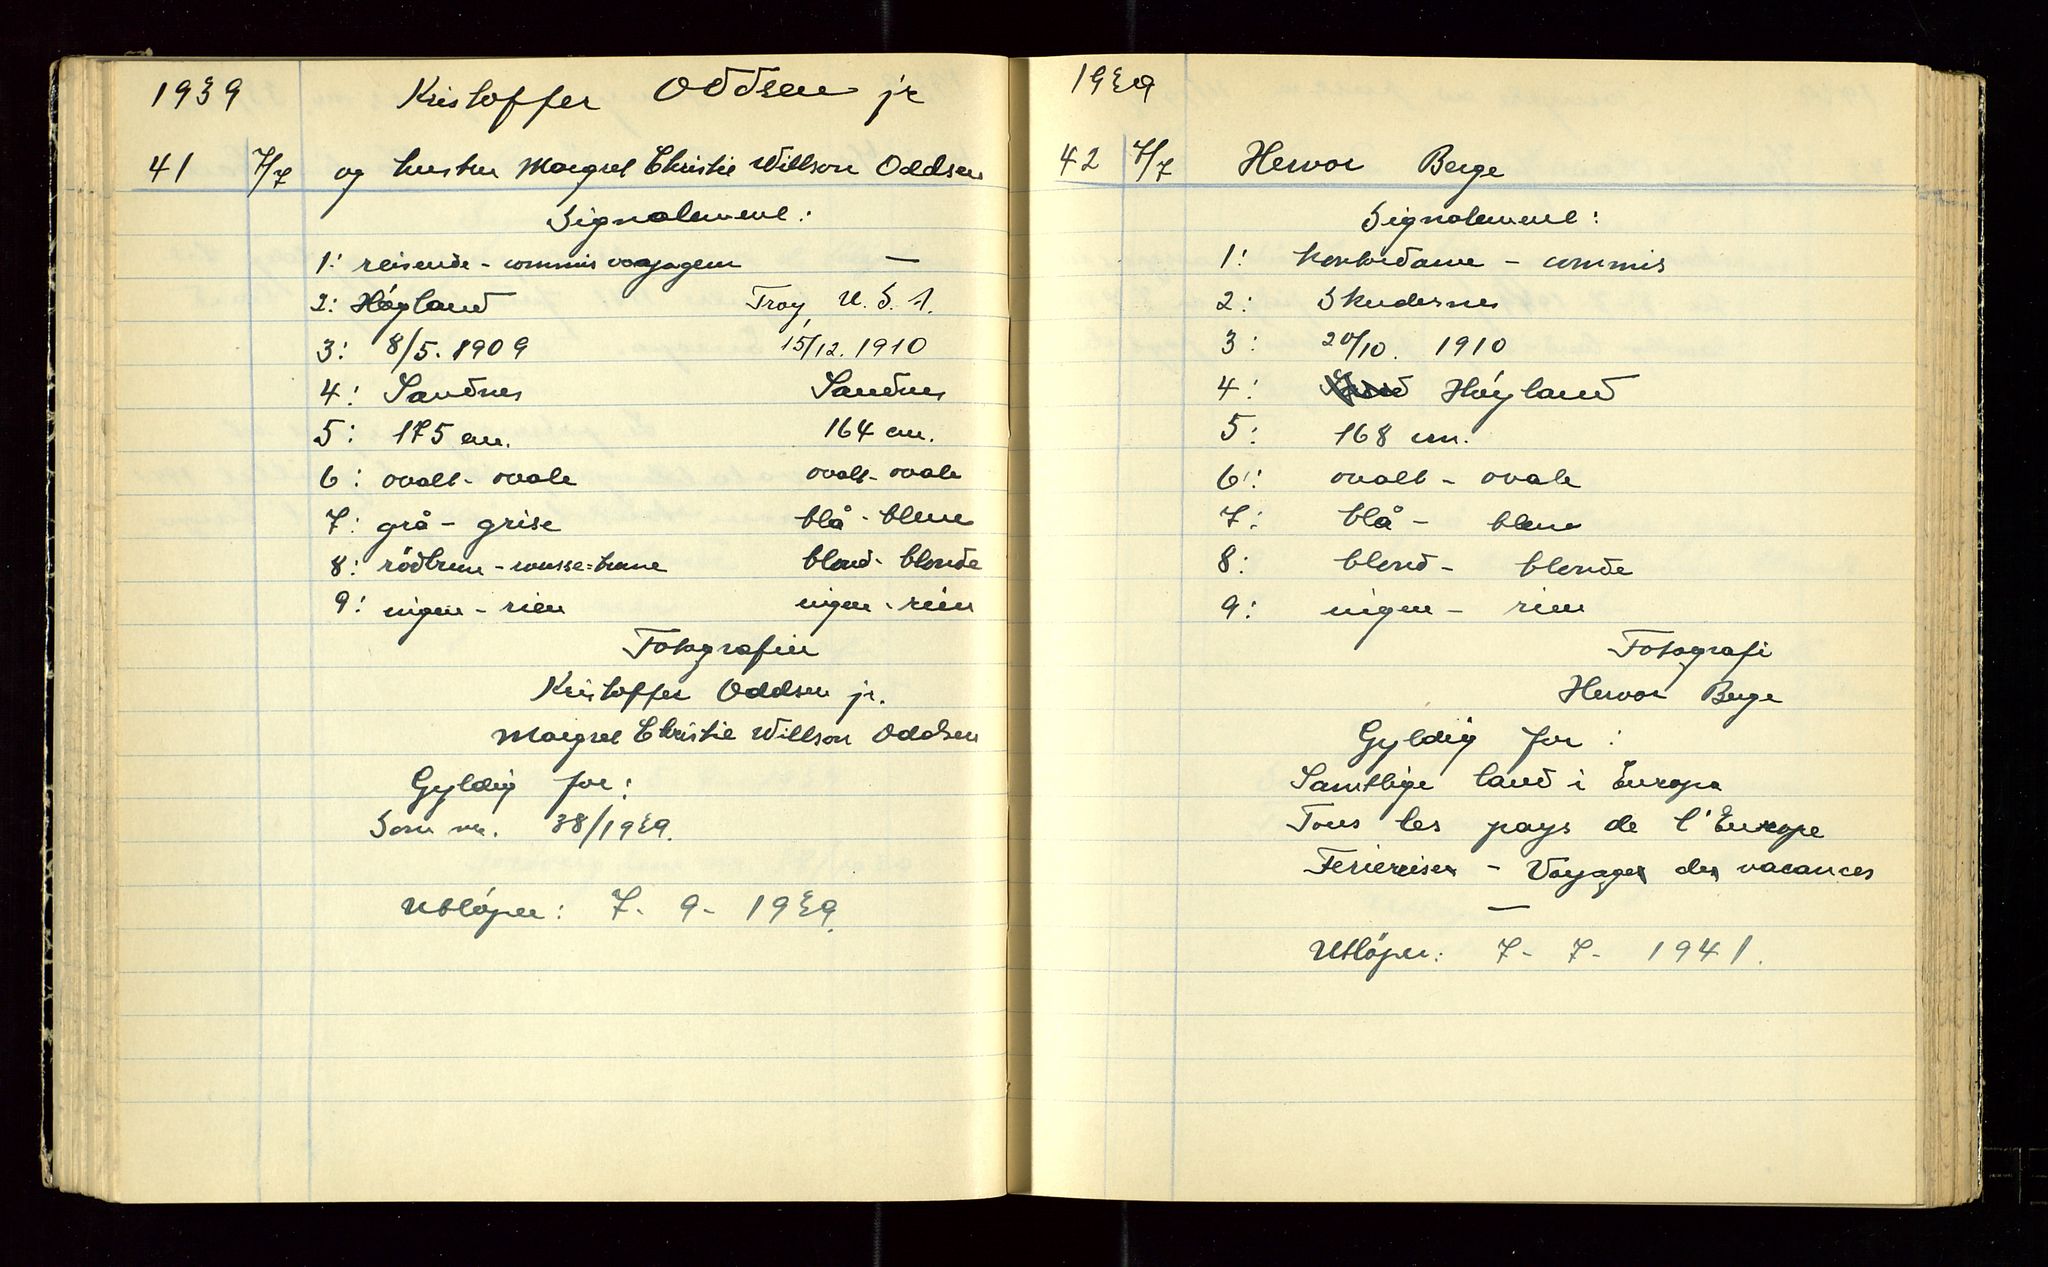 1939 Kristoffer Oddsen jr
41 7/7 og hustru Margret Christie Willson Oddsen
Signalement:
1: reisende - commis voyageur —
2: Høyland Troy, U. S. A.
3: 8/5. 1909 15/12. 1910
4: Sandnes Sandnes
5: 175 cm. 164 cm.
6: ovalt - ovale ovalt - ovale
7: grå - grise blå - bleue
8: rödbrun - rousse=brune blond - blonde
9: ingen - rien ingen - rien
Fotografier
Kristoffer Oddsen jr.
Margret Christie Willson Oddsen
Gyldig for:
Som nr. 38/1939.
Utløper: 7. 9 - 1939.
1939
42 7/7 Hervor Berge
Signalement:
1: kontordame - commis
2: Skudesnes
3: 20/10. 1910
4: Høyland
5: 168 cm.
6: ovalt - ovale
7: blå - bleue
8: blond - blonde
9: ingen - rien
Fotografi
Hervor Berge
Gyldig for:
Samtlige land i Europa
Tous les pays de l'Europe
Feriereiser - Voyages des vacances
—
Utløper: 7 - 7 - 1941.